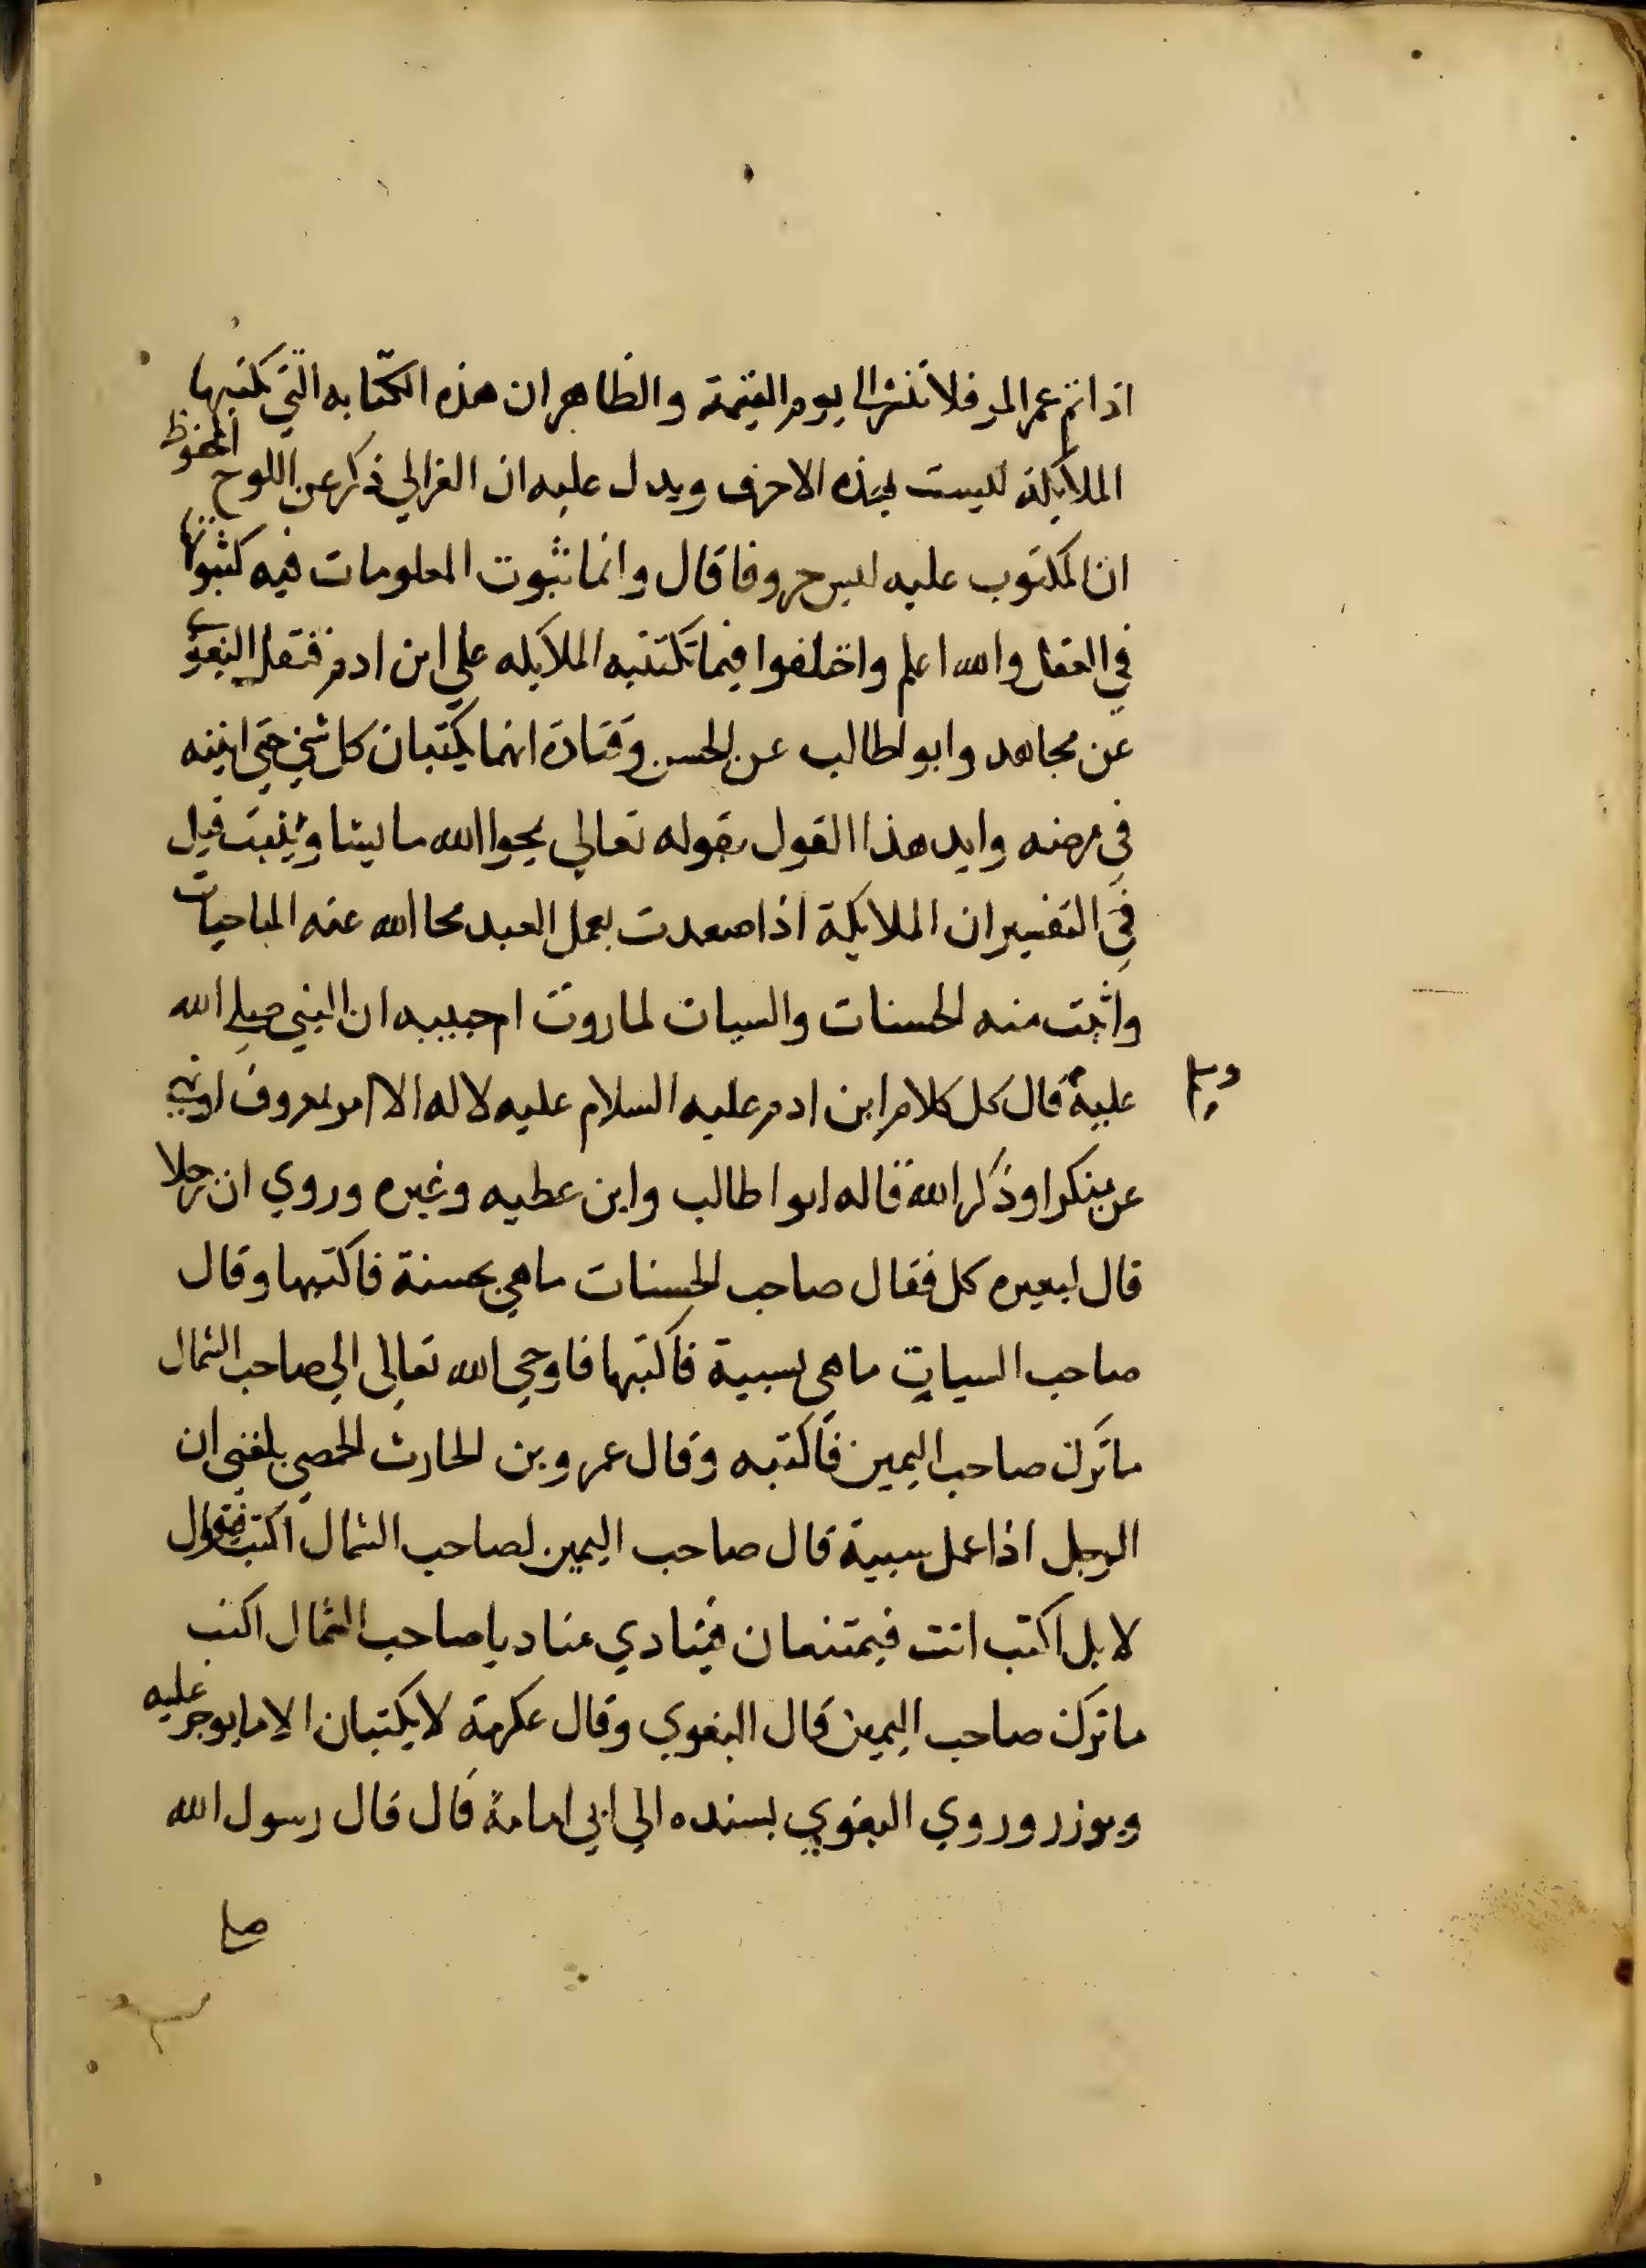 اذا تم عمر المر فلا تنشر الا يوم القيمة والظاهر ان هذه الكتابه التي تكتبها
الملايكة ليست بهذه الاحرف ويدل عليه ان الغزالي ذكر عن اللوح المحفوظ
ان المكتوب عليه ليس حروفا قال وانما ثبوت المعلومات فيه كثبوتها
في العقل والله اعلم واختلفوا فيما تكتبه الملايكه علي ابن ادم فنقل البغوي
عن مجاهد وابو طالب عن الحسن وقتادة انهما يكتبان كل شي حتي انينه
في مرضه وايد هذا القول بقوله تعالي يمحوا الله ما يشا ويثبت قيل
في التفسير ان الملايكة اذا صعدت بعمل العبد محا الله عنه المباحات
واثبت منه الحسنات والسيات لما روت ام حبيبه ان النبي صلي الله
عليه وسلم قال كل كلام ابن ادم عليه السلام عليه لا له الا امر بمعروف او نهي
عن منكر او ذكر الله قاله ابوا طالب وابن عطيه وغيره وروي ان رجلا
قال لبعيره كل فقال صاحب الحسنات ما هي بحسنة فاكتبها وقال
صاحب السيات ما هي بسيية فاكتبها فاوحي الله تعالي الي صاحب الشمال
ما ترك صاحب اليمين فاكتبه وقال عمرو بن الحارث الحمصي بلغني ان
الرجل اذا عمل سيية قال صاحب اليمين لصاحب الشمال اكتب فيقول
لا بل اكتب انت فيمتنعان فينادي مناد يا صاحب الشمال اكتب
ما ترك صاحب اليمين قال البغوي وقال عكرمة لا يكتبان الا ما يوجر عليه
ويوزر وروي البغوي بسنده الي ابي امامة قال قال رسول الله
صلي